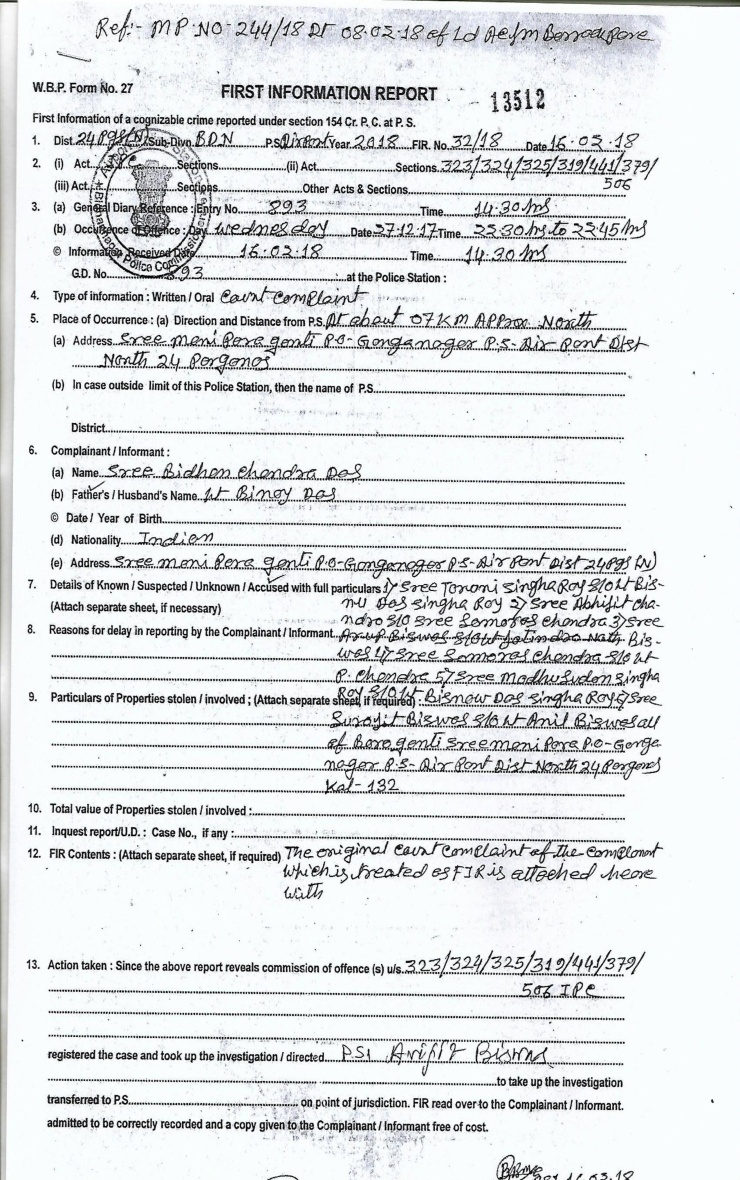 Ref:- MP NO-244/18 Dt 08.02.18 of Ld
W.B.P. Form No. 27
FIRST INFORMATION REPORT - 13512
First Information of a cognizable crime reported under section 154 Cr. P. C. at P. S.
1. Dist. 24 Pgs (N) Sub-Divn. BDN P.S. Airport Year 2018 FIR. No. 32/18 Date 16.03.18
2. (i) Act IPC Sections (ii) Act Sections 323/324/325/319/441/379/
(iii) Act Sections Other Acts & Sections 506
3. (a) General Diary Reference : Entry No. 893 Time 14.30 hrs
(b) Occurence of Offence : Day Wednesday Date 27.12.17 Time 23.30 hrs to 23.45 hrs
© Information Received Date 16.03.18 Time 14.30 hrs
G.D. No. 893 at the Police Station :
4. Type of information : Written / Oral Court Complaint
5. Place of Occurrence : (a) Direction and Distance from P.S. At about 07 KM Approx North
(a) Address Sree moni Para ganti P.O- Ganganagar P.S- Air Port Dist
North 24 Parganas
(b) In case outside limit of this Police Station, then the name of P.S.
District
6. Complainant / Informant :
(a) Name Sree Bidhan Chandra Das
(b) Father's / Husband's Name Lt Binoy Das
© Date / Year of Birth
(d) Nationality Indian
(e) Address Sree moni Para ganti P.O-Ganganagar P.S-Air Port Dist 24 Pgs (N)
7. Details of Known / Suspected / Unknown / Accused with full particulars 1) Sree Tarani Singha Roy S/O Lt Bis-
(Attach separate sheet, if necessary) nu Das Singha Roy 2) Sree Abhijit cha-
ndra S/O Sree Samaras Chandra 3) Sree
8. Reasons for delay in reporting by the Complainant / Informant Arup Biswas S/O Lt Jatindra Nath Bis-
was 4) Sree Samaras Chandra S/O Lt
P. Chandra 5) Sree Madhu Sudan Singha
9. Particulars of Properties stolen / involved ; (Attach separate sheet, if required) : Roy S/O Lt Bisnow Das Singha Roy 6) Sree
Surajit Biswas S/O Lt Anil Biswas all
of Bara ganti Sree moni Para P.O-Ganga
nagar P.S- Air Port Dist North 24 Parganas
Kol- 132
10. Total value of Properties stolen / involved :
11. Inquest report/U.D. : Case No., if any :
12. FIR Contents : (Attach separate sheet, if required) The original Court Complaint of the Complanant
which is treated as FIR is attached heare
with
13. Action taken : Since the above report reveals commission of offence (s) u/s. 323/324/325/319/441/379/
506 IPC
registered the case and took up the investigation / directed PSI Arijit Biswas
to take up the investigation
transferred to P.S. on point of jurisdiction. FIR read over to the Complainant / Informant.
admitted to be correctly recorded and a copy given to the Complainant / Informant free of cost.
16.03.18